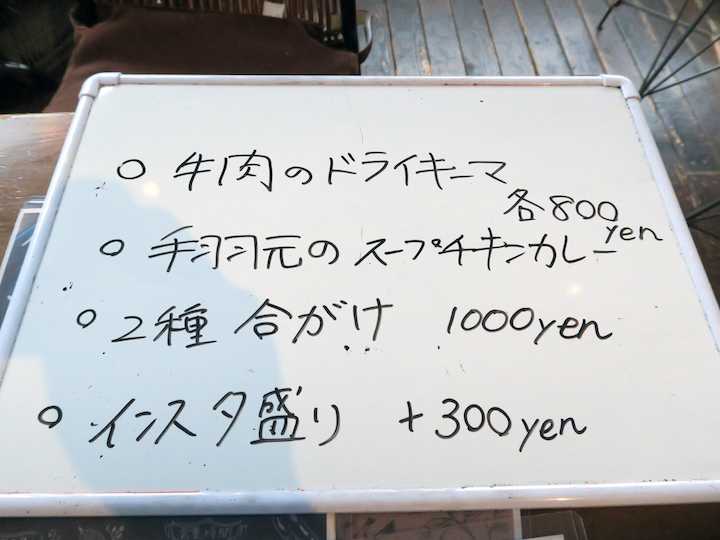 ○ 牛肉のドライキーマ
各800
yen
○ 手羽元のスープチキンカレー
○ 2種 合がけ 1000yen
○ インスタ盛り +300yen